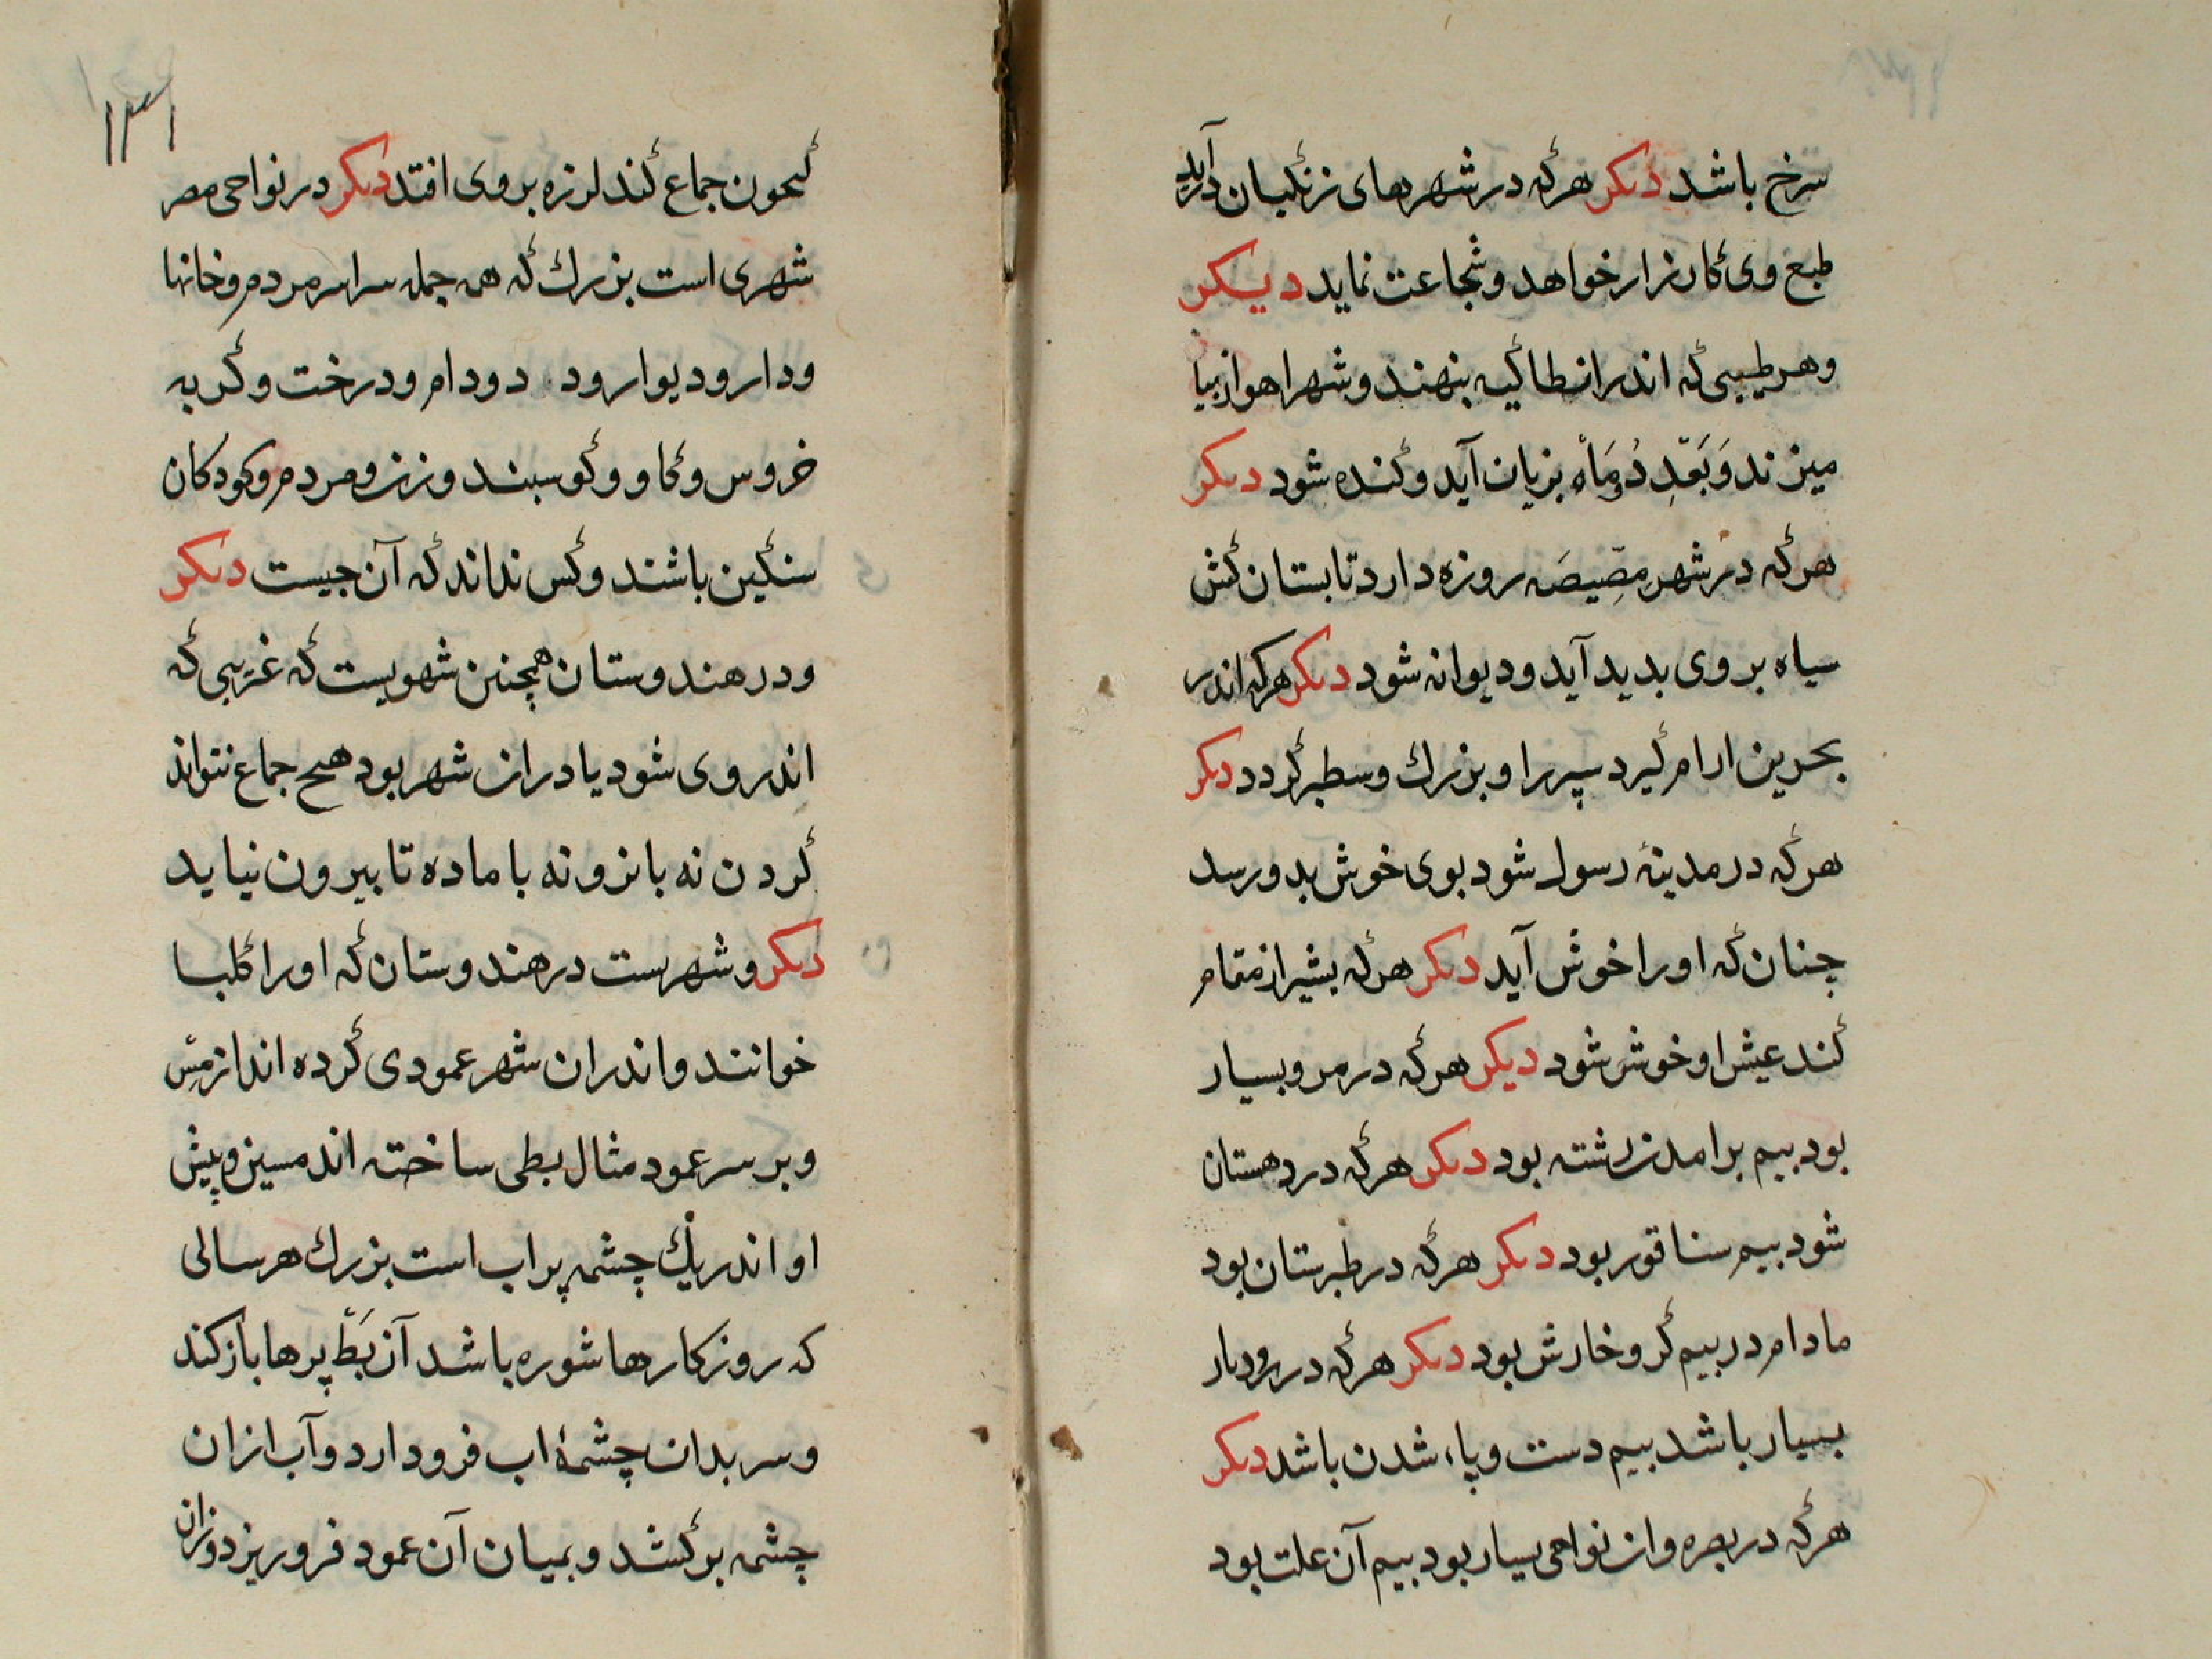 سرخ باشد دیکر هرکه در شهرهای زنکیان درآید
طبع وی کارزار خواهد و شجاعت نماید دیکر
و هر طیبی که اندر انطاکیه بنهند و شهر اهواز بیا
میزند وَبَعْدِ دُو مَاهْ بزیان آید و کنده شود دیکر
هرکه در شهر مصّیصَه روزه دارد تابستان کش
سیاه بر وی بدید آید و دیوانه شود دیکر هرکه اندر
بحرین ارام کیرد سپر را و بزرك و سطبر کردد دیکر
هرکه در مدینهٔ رسول شود بوی خوش بدو رسد
چنان که اورا خوش آید دیکر هرکه بشیراز مقام
کند عیش او خوش شود دیکر هرکه در مرو بسیار
بود بیم برامدن رشته بود دیکر هرکه در دهستان
شود بیم سناقور بود دیکر هرکه در طبرستان بود
مادام در بیم کر و خارش بود دیکر هرکه در رودبار
بسیار باشد بیم دست و پاء شدن باشد دیکر
هرکه در بصره و ان نواحی بسیار بود بیم آن علت بود
۱۳۱
کجون جماع کند لرزه بر وی افتد دیکر در نواحی مصر
شهری است بزرك که همه جمله سراسر مردم و خانها
و دار و دیوار و د دودام و درخت و کربه
خروس و کاو و کوسبند و زن و مردم و کودکان
سنکین باشند و کس نداند که آن جیست دیکر
و در هندوستان همچنین شهریست که غریبی که
اندر وی شود یا در ان شهر بود هیح جماع نتواند
کردن نه با نر و نه با ماده تا بیرون نیاید
دیکر و شهریست در هندوستان که اورا کلبا
خوانند و اندر ان شهر عمودی کرده اند از مس
و بر سر عمود مثال بطی ساخته اند مسین و پیش
او اندر یك چشمه پر اب است بزرك هر سالی
که روزکارها شوره باشد آن بَطّ پرها باز کند
و سر بدان چشمهٔ اب فرو دارد و آب از ان
چشمه برکشد و بمیان آن عمود فرو ریزد وزان